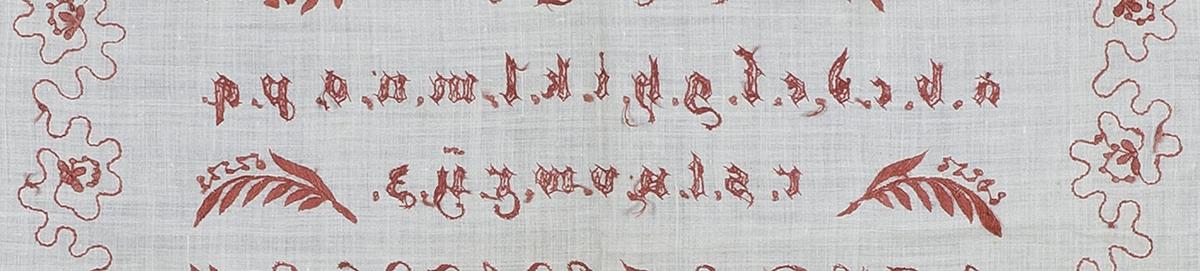 a.b.c.d.e.f.g.h.i.k.l.m.n.o.p.q.
r.s.t.u.v.w.x.ÿ.z.